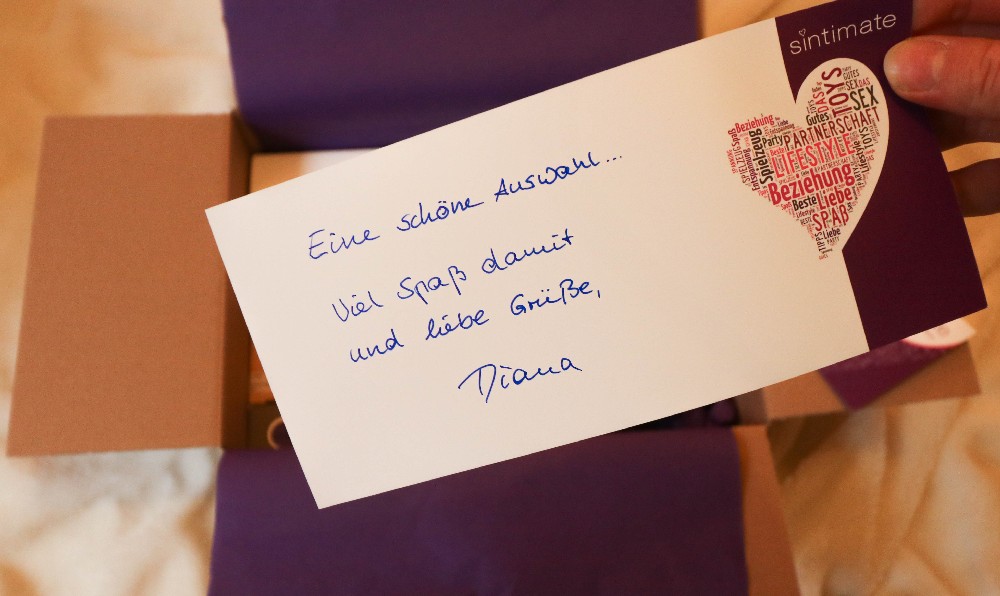 sintimate
Eine schöne Auswahl...
Viel Spaß damit
und liebe Grüße,
Diana
Beziehung
Party
Spielzeug
Gutes
DAS
TOYS
GUTES
SEX
DAS
PARTNERSCHAFT
LIFESTYLE
Beziehung
Beste
Liebe
SPAß
Liebe
TIPPS